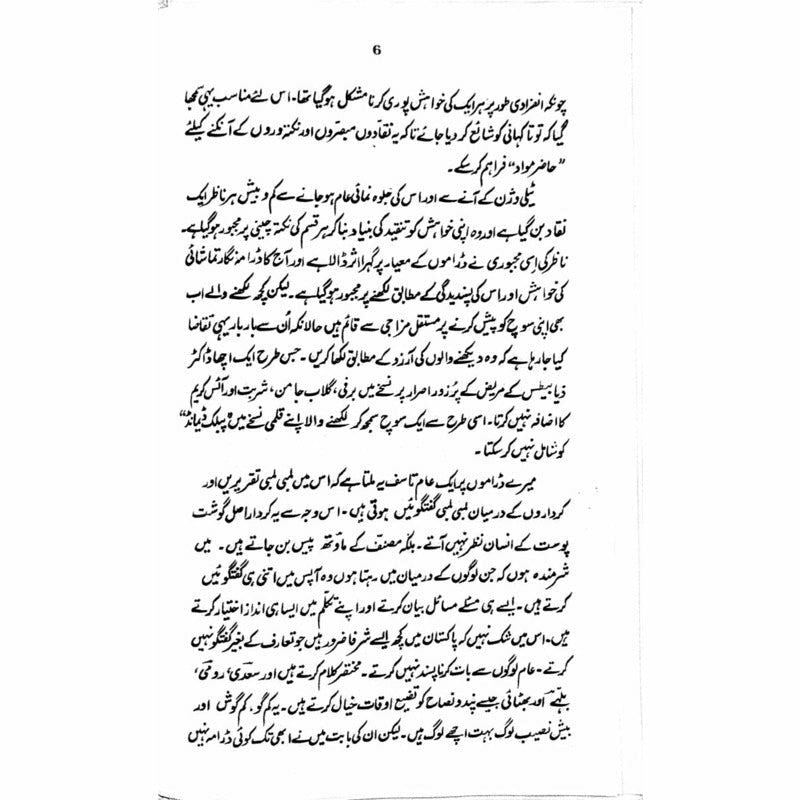 6
چونکہ انفرادی طور پر ہر ایک کی خواہش پوری کرنا مشکل ہو گیا تھا۔ اس لئے مناسب یہی سمجھا
گیا کہ توتا کہانی کو شائع کر دیا جائے تاکہ یہ نقادوں مبصروں اور نکتہ وروں کے آنکنے کیلئے
”حاضر مواد“ فراہم کر سکے۔
ٹیلی وژن کے آنے سے اور اس کی جلوہ نمائی عام ہو جانے سے کم و بیش ہر ناظر ایک
نقاد بن گیا ہے اور وہ اپنی خواہش کو تنقید کی بنیاد بنا کر ہر قسم کی نکتہ چینی پر مجبور ہو گیا ہے۔
ناظر کی اسی مجبوری نے ڈراموں کے معیار پر گہرا اثر ڈالا ہے اور آج کا ڈرامہ نگار تماشائی
کی خواہش اور اس کی پسندیدگی کے مطابق لکھنے پر مجبور ہو گیا ہے۔ لیکن کچھ لکھنے والے اب
بھی اپنی سوچ کو پیش کرنے پر مستقل مزاجی سے قائم ہیں حالانکہ اُن سے بار بار یہی تقاضا
کیا جا رہا ہے کہ وہ دیکھنے والوں کی آرزو کے مطابق لکھا کریں۔ جس طرح ایک اچھا ڈاکٹر
ذیابیطس کے مریض کے پُر زور اصرار پر نسخے میں برفی، گلاب جامن، شربت اور آئس کریم
کا اضافہ نہیں کرتا۔ اسی طرح سے ایک سوچ سمجھ کر لکھنے والا اپنے قلمی نسخے میں ”پبلک ڈیمانڈ“
کو شامل نہیں کر سکتا۔
میرے ڈراموں پر ایک عام تاسف یہ ملتا ہے کہ اس میں لمبی لمبی تقریریں اور
کرداروں کے درمیان لمبی لمبی گفتگوئیں ہوتی ہیں۔ اس وجہ سے یہ کردار اصل گوشت
پوست کے انسان نظر نہیں آتے۔ بلکہ مصنف کے ماؤتھ پیس بن جاتے ہیں۔ میں
شرمندہ ہوں کہ جن لوگوں کے درمیان میں رہتا ہوں وہ آپس میں اتنی ہی گفتگوئیں
کرتے ہیں۔ ایسے ہی مسئلے مسائل بیان کرتے اور اپنے تکلّم میں ایسا ہی انداز اختیار کرتے
ہیں۔ اس میں شک نہیں کہ پاکستان میں کچھ ایسے شرفا ضرور ہیں جو تعارف کے بغیر گفتگو نہیں
کرتے۔ عام لوگوں سے بات کرنا پسند نہیں کرتے۔ مختصر کلام کرتے ہیں اور سعدی، رومی،
بلہے اور بھٹائی جیسے پند و نصائح کو تضیع اوقات خیال کرتے ہیں۔ یہ کم گو، کم گوش اور
بیش نصیب لوگ بہت اچھے لوگ ہیں۔ لیکن ان کی بابت میں نے ابھی تک کوئی ڈرامہ نہیں